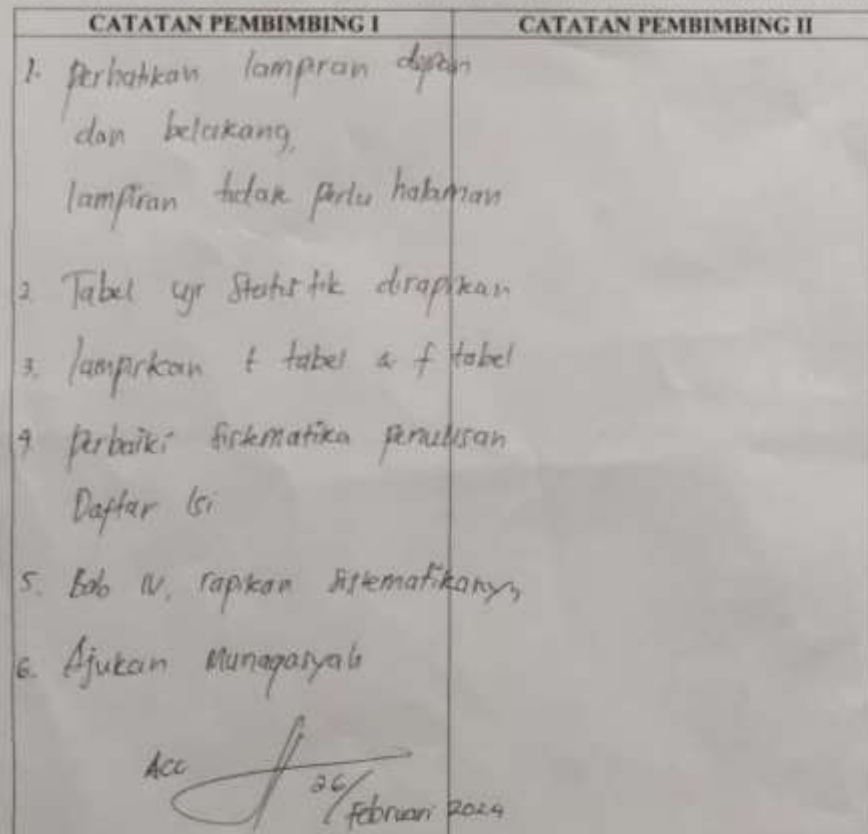 CATATAN PEMBIMBING I CATATAN PEMBIMBING II
1. Perhatikan lampiran depan
dan belakang,
lampiran tidak perlu halaman
2. Tabel uji Statistik dirapikan
3. lampirkan t tabel & f tabel
4. Perbaiki Sistematika Penulisan
Daftar Isi
5. Bab IV, rapikan sistematikanya
6. Ajukan Munaqasyah
Acc
26/Februari 2024